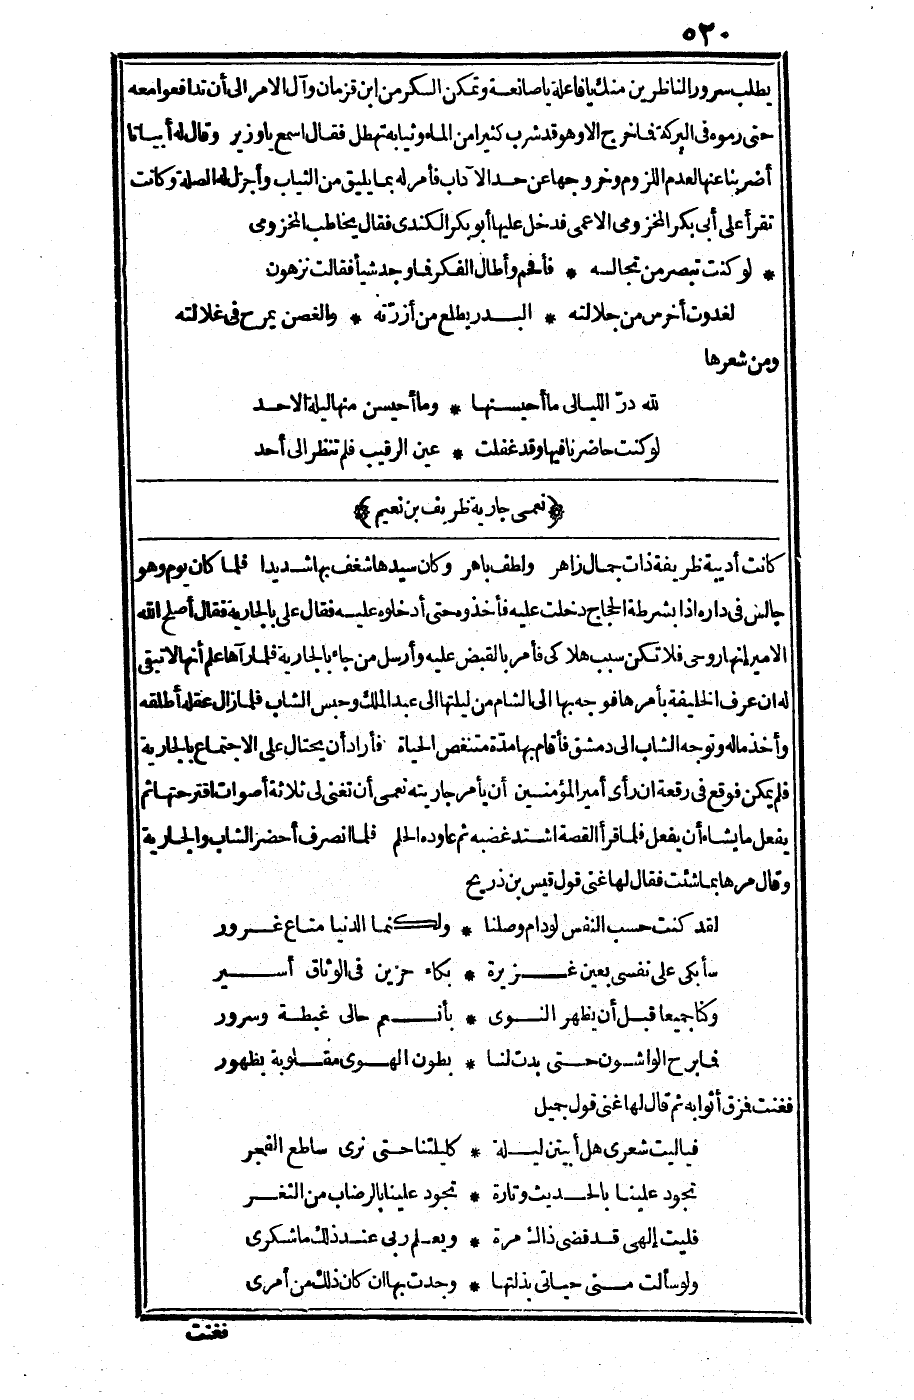 ٥٢٠
يطلب سرور الناظرين منك يا فاعلة يا صانعة وتمكن السكر من ابن قزمان وآل الامر الى أن تدافعوا معه
حتى رموه فى البركة فما خرج الا وهو قد شرب كثيرا من الماء وثيابه تهطل فقال اسمع يا وزير وقال له أبياتا
أضربنا عنها لعدم اللزوم وخروجها عن حد الآداب فأمر له بما يليق من الثياب وأجزل له الصلة وكانت
تقرأ على أبى بكر المخزومى الاعمى فدخل عليها أبو بكر الكندى فقال يخاطب المخزومى
* لو كنت تبصر من تجالسه * فأفحم وأطال الفكر فما وجد شيأ فقالت نزهون
لغدوت أخرس من جلالته * البدر يطلع من أزرّته * والغصن يمرح فى غلالته
ومن شعرها
لله درّ الليالى ما أحيسنها * وما أحيسن منها ليلة الاحد
لو كنت حاضرنا فيها وقد غفلت * عين الرقيب فلم تنظر الى أحد
﴿نعمى جارية ظريف بن نعيم﴾
كانت أديبة ظريفة ذات جمال زاهر ولطف باهر وكان سيدها شغف بها شديدا فلما كان يوم وهو
جالس فى داره اذا بشرطة الحجاج دخلت عليه فأخذوه حتى أدخلوه عليه فقال على بالجارية فقال أصلح الله
الامير إنها روحى فلا تكن سبب هلاكى فأمر بالقبض عليه وأرسل من جاء بالجارية فلما رآها علم أنها لا تبقى
له ان عرف الخليفة بأمرها فوجه بها الى الشام من ليلتها الى عبد الملك وحبس الشاب فلما زال عقله أطلقه
وأخذ ماله وتوجه الشاب الى دمشق فأقام بها مدة متنغص الحياة فأراد أن يحتال على الاجتماع بالجارية
فلم يمكن فوقع فى رقعة ان رأى أمير المؤمنين أن يأمر جاريته نعمى أن تغنى لى ثلاثة أصوات اقترحتها ثم
يفعل ما يشاء أن يفعل فلما قرأ القصة اشتد غضبه ثم عاوده الحلم فلما انصرف أحضر الشاب والجارية
وقال مرها بما شئت فقال لها غنى قول قيس بن ذريح
لقد كنت حسب النفس لو دام وصلنا * ولكنما الدنيا متاع غرور
سأبكى على نفسى بعين غزيرة * بكاء حزين فى الوثاق أسير
وكنا جميعا قبل أن يظهر النوى * بأنعم حالى غبطة وسرور
فما برح الواشون حتى بدت لنا * بطون الهوى مقلوبة بظهور
فغنت فمزق أثوابه ثم قال لها غنى قول جميل
فيا ليت شعرى هل أبيتن ليلة * كليلتنا حتى نرى ساطع الفجر
تجود علينا بالحديث وتارة * تجود علينا بالرضاب من الثغر
فليت إلهى قد قضى ذاك مرة * ويعلم ربى عند ذلك ما شكرى
ولو سألت منى حياتى بذلتها * وجدت بها ان كان ذلك من أمرى
فغنت